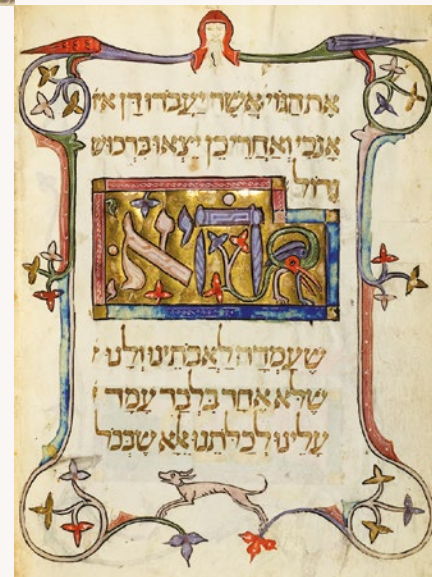 אֶת הַגּוֹי אֲשֶׁר יַעֲבֹדוּ דָּן
אָנֹכִי וְאַחֲרֵי כֵן יֵצְאוּ בִּרְכוּשׁ
גָּדוֹל
והיא
שֶׁעָמְדָה לַאֲבֹתֵינוּ וְלָנוּ
שֶׁלֹּא אֶחָד בִּלְבַד עָמַד
עָלֵינוּ לְכַלֹּתֵנוּ אֶלָּא שֶׁבְּכֹל